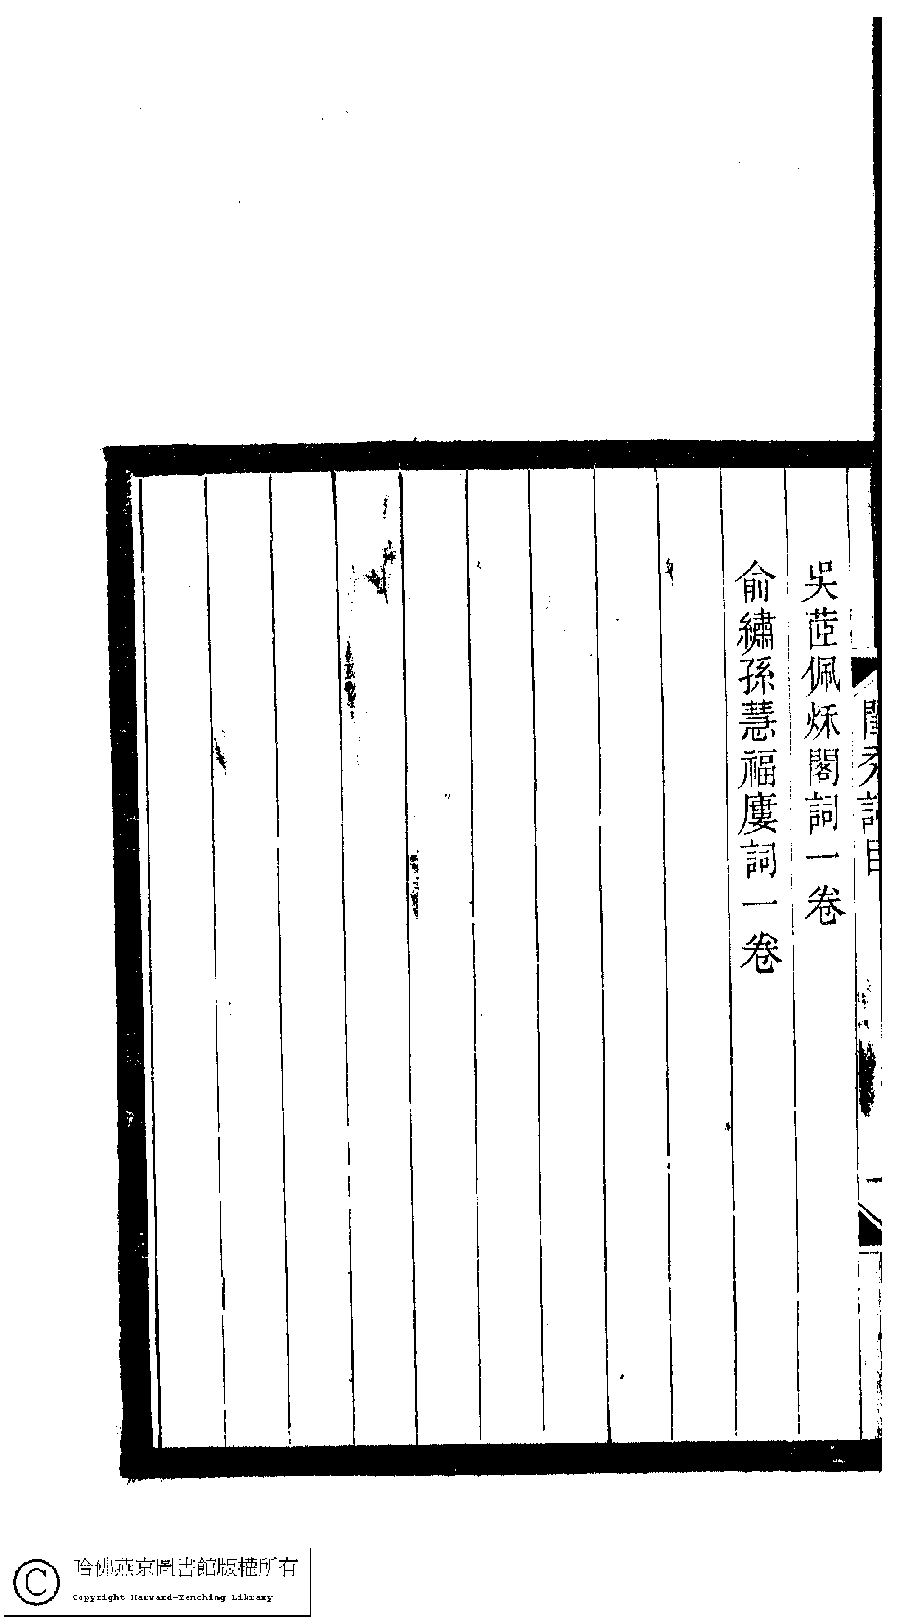 閨秀詞目
一
吳茝佩秌閣詞一卷
俞繡孫慧福廔詞一卷
哈佛燕京圖書館版權所有
Copyright Harvard-Yenching Library